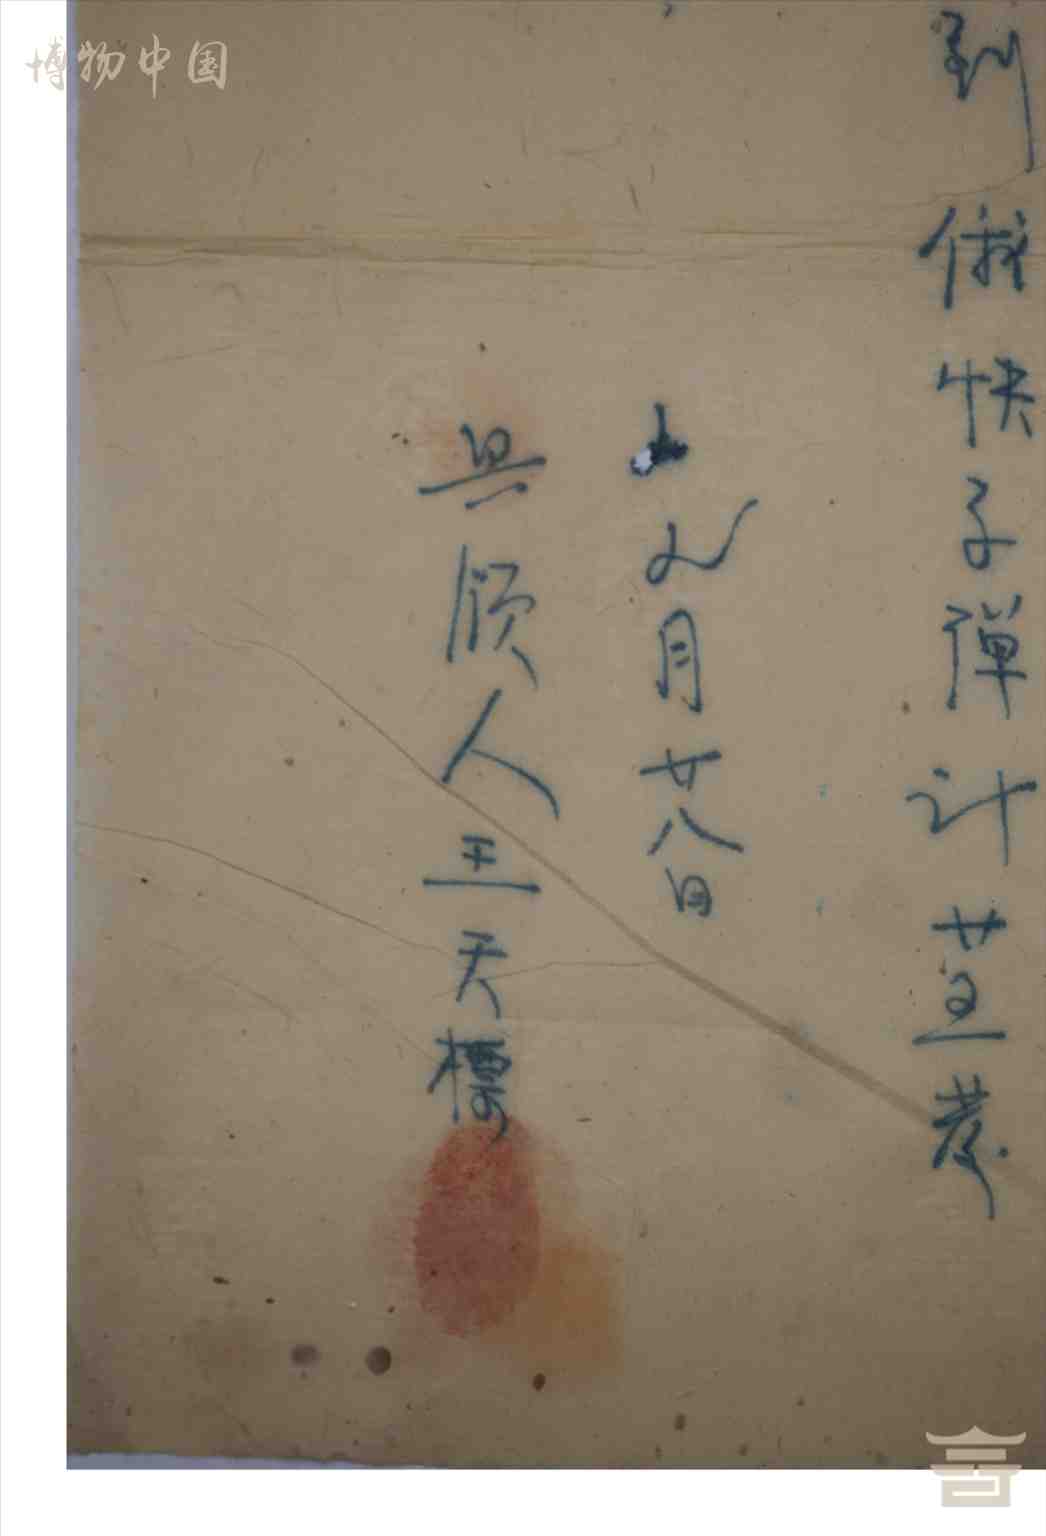 博物中国
到俄快子弹计廿五發
九月廿八日
具领人王天標